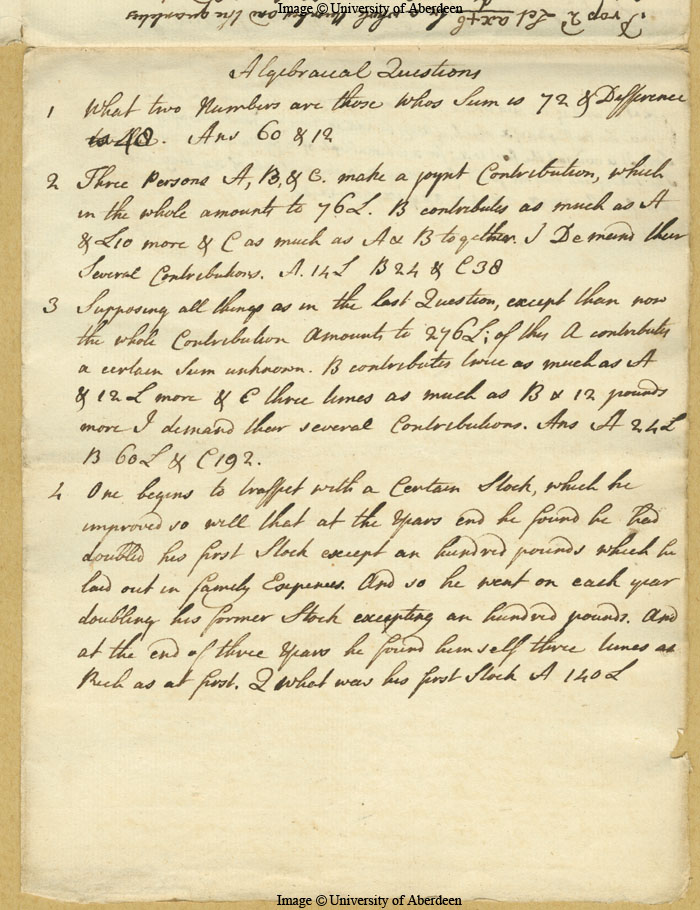 Image © University of Aberdeen
Prop 2d Let ax+b
Algebraical Questions
1 What two Numbers are those whos Sum is 72 & Difference
is 48. Ans 60 & 12
2 Three Persons A, B, & C. make a joynt Contribution, which
in the whole amounts to 76L. B contributes as much as A
& L10 more & C as much as A & B together. I Demand their
Several Contributions. A. 14L B 24 & C 38
3 Supposing all things as in the last Question, except than now
the whole Contribution Amounts to 276L; of this A contributes
a certain Sum unknown. B contributes twice as much as A
& 12 L more & C three times as much as B & 12 pounds
more I demand their several Contributions. Ans A 24L
B 60L & C 192.
4 One begins to traffet with a Certain Stock, which he
improved so well that at the Years end he found he had
doubled his first Stock except an hundred pounds which he
laid out in family Expences. And so he went on each year
doubling his former Stock excepting an hundred pounds. And
at the end of three Years he found himself three times as
Rich as at first. Q what was his first Stock A 140L
Image © University of Aberdeen